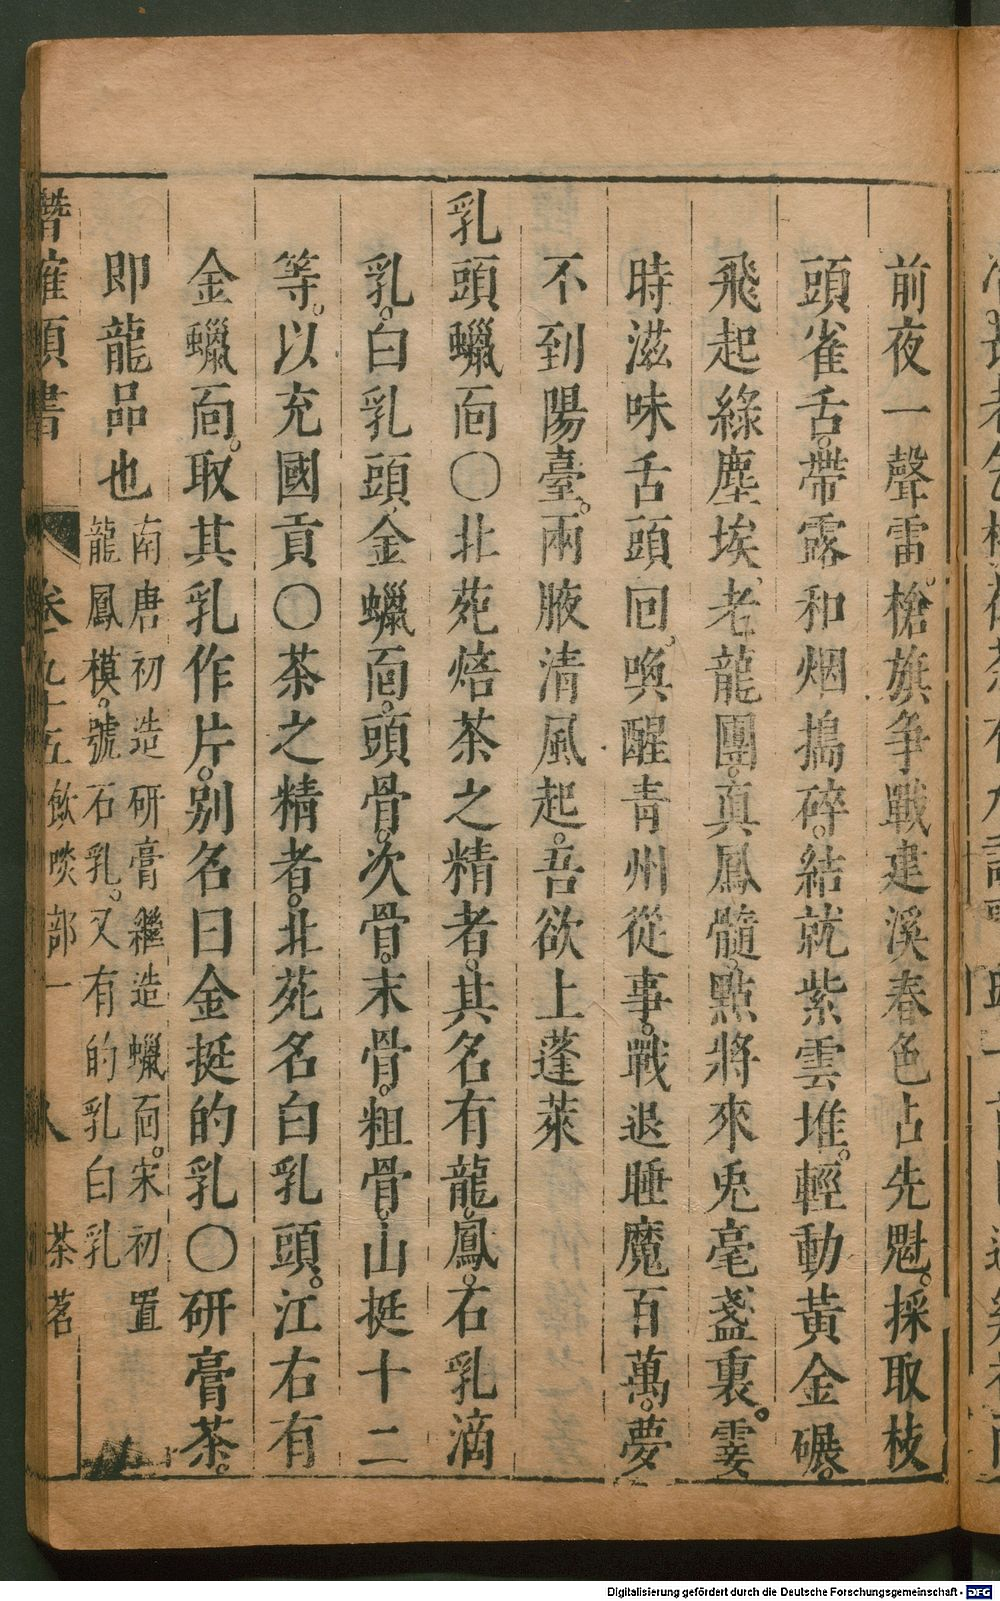 前夜一聲雷。槍旗爭戰建溪春色占先魁。採取枝
頭雀舌。帶露和烟搗碎。結就紫雲堆。輕動黃金碾。
飛起綠塵埃。老龍團。真鳳髓。點將來兎毫盞裏。霎
時滋味舌頭回。喚醒青州從事。戰退睡魔百萬。夢
不到陽臺。兩腋清風起。吾欲上蓬萊
乳頭蠟面〇北苑焙茶之精者。其名有龍。鳳。石乳滴
乳。白乳頭金蠟面。頭骨。次骨。末骨。粗骨。山挺十二
等。以充國貢〇茶之精者。北苑名白乳頭。江右有
金蠟面。取其乳作片。别名曰金挺的乳〇研膏茶。
即龍品也南唐初造研膏繼造蠟面。宋初置
龍鳳模。號石乳。又有的乳白乳
潛確類書 卷九十五 飲啖部一 八 茶茗
Digitalisierung gefördert durch die Deutsche Forschungsgemeinschaft - DFG